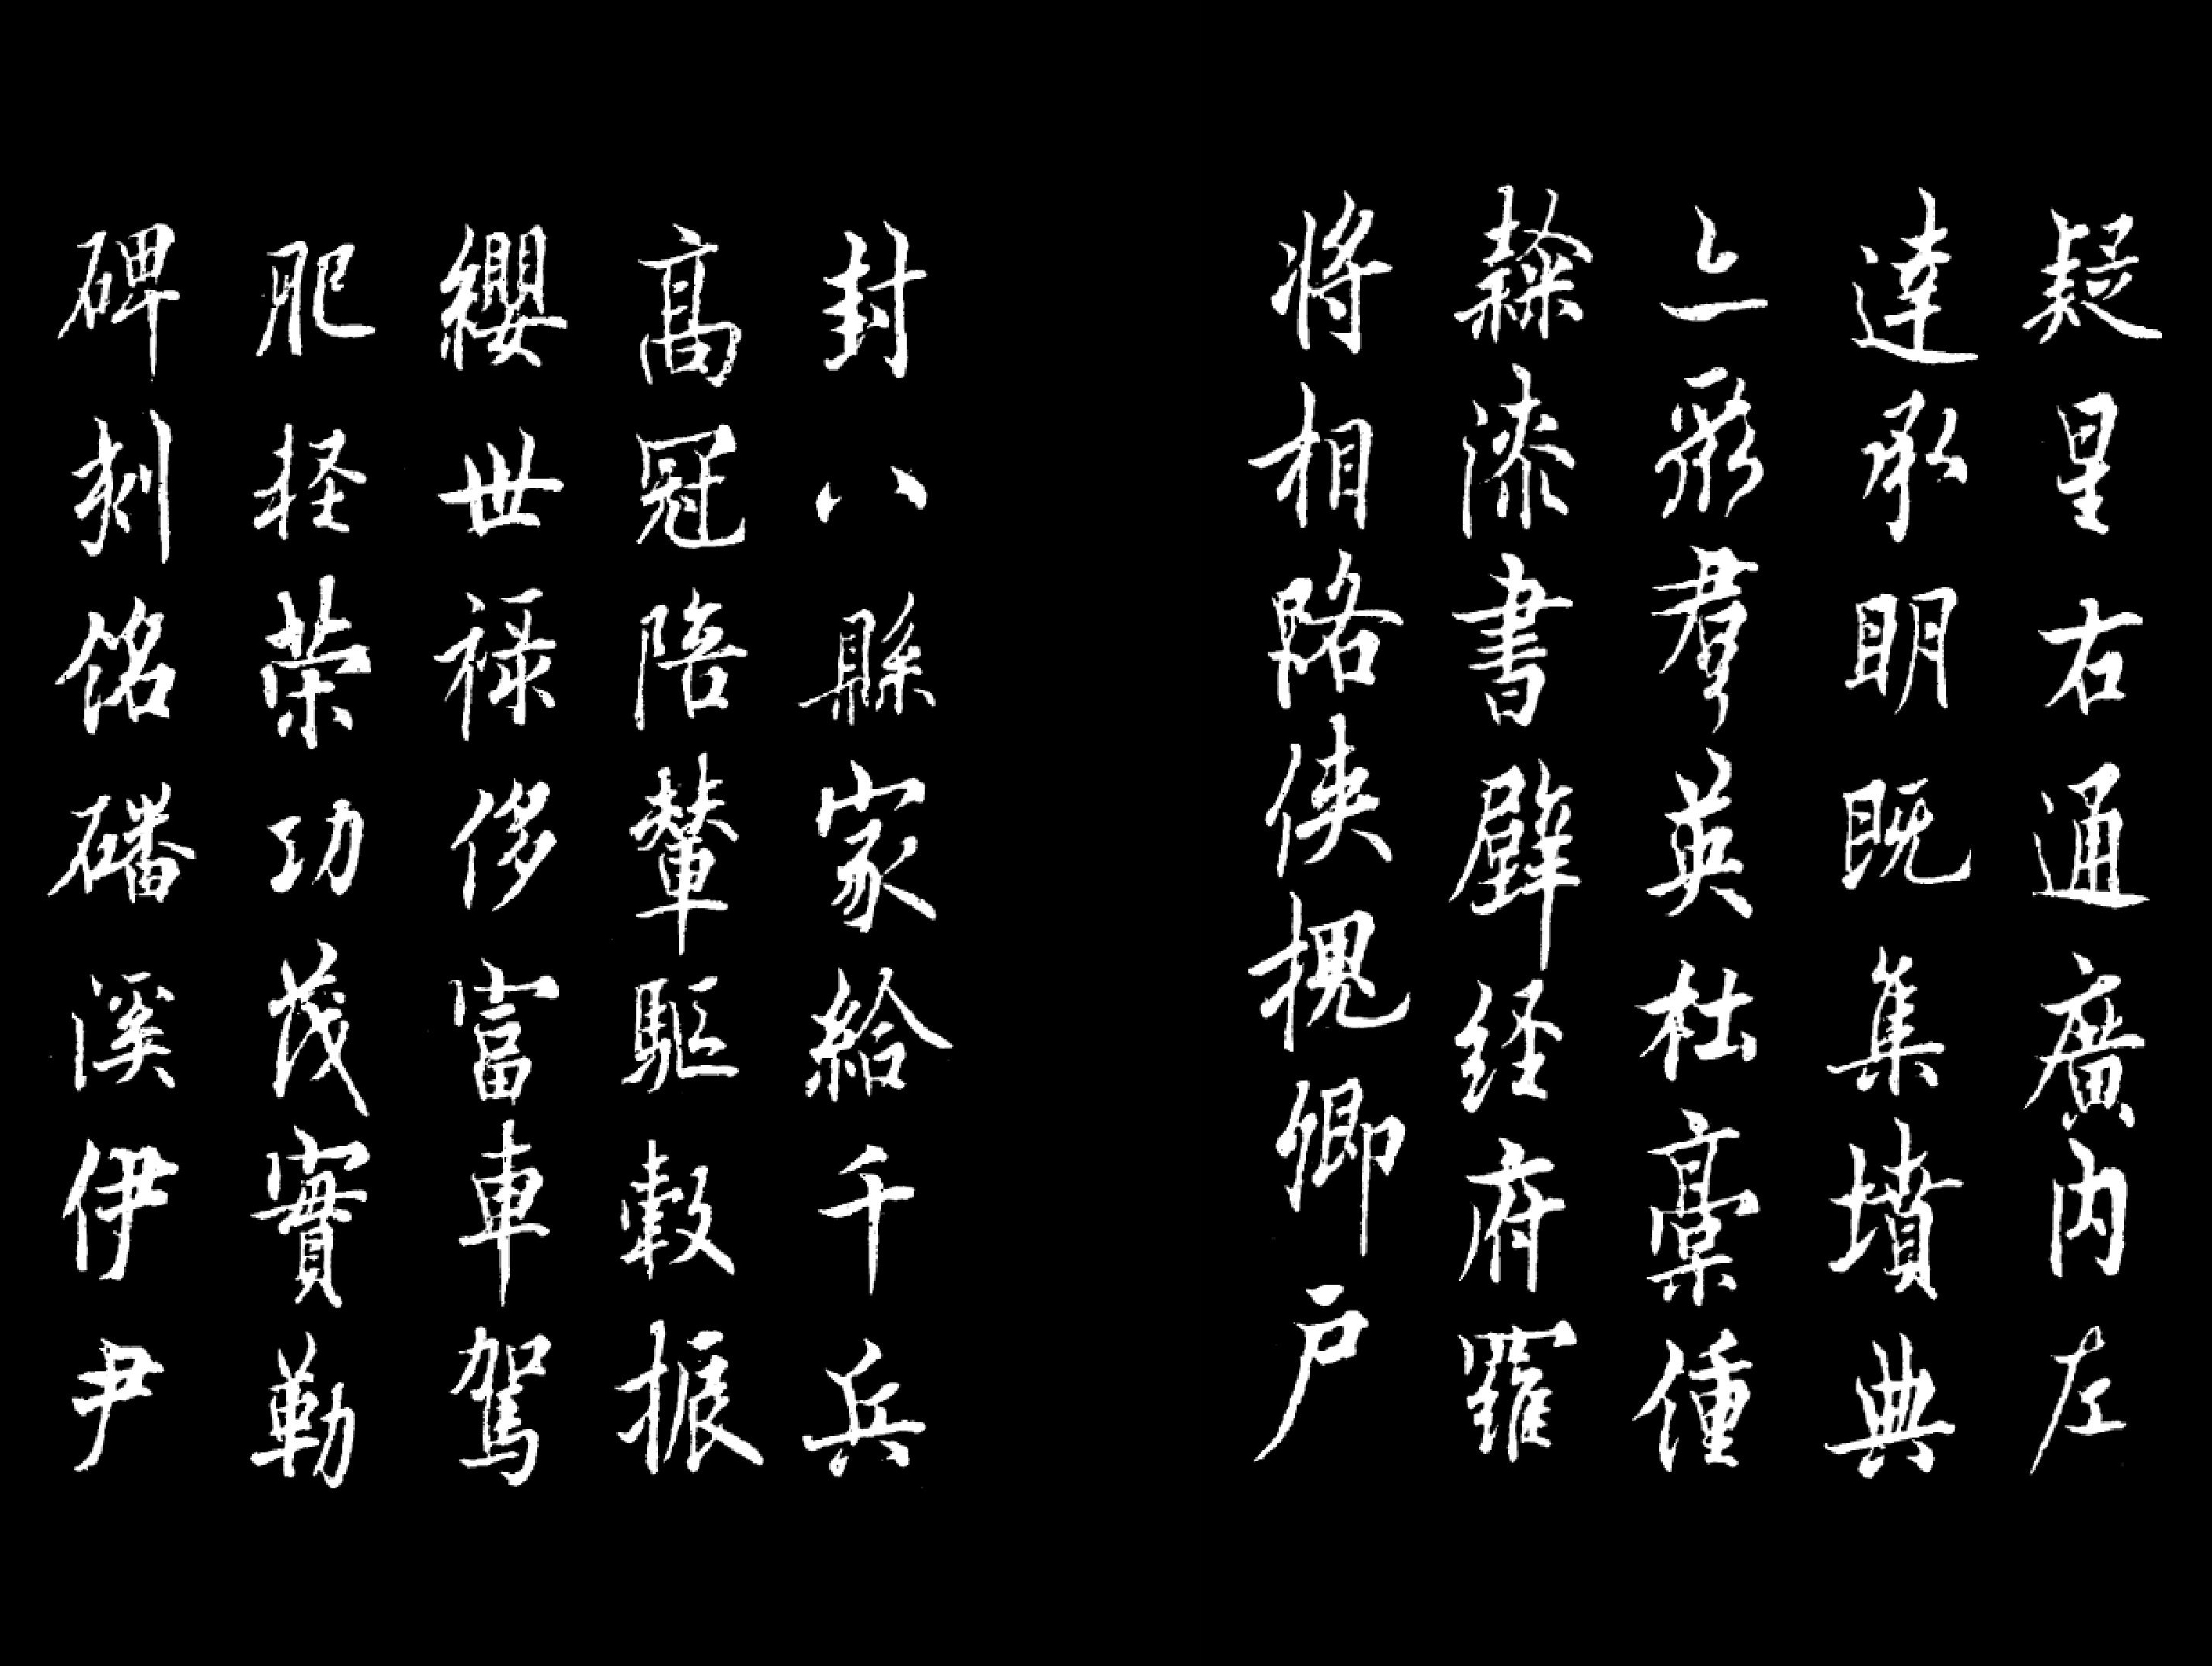 疑星右通廣内左
達承明既集墳典
亦聚羣英杜稾鍾
隸漆書壁経府羅
将相路俠槐卿户
封八縣家給千兵
髙冠陪輦駈轂振
纓世禄侈富車駕
肥軽策功茂實勒
碑刻銘磻溪伊尹